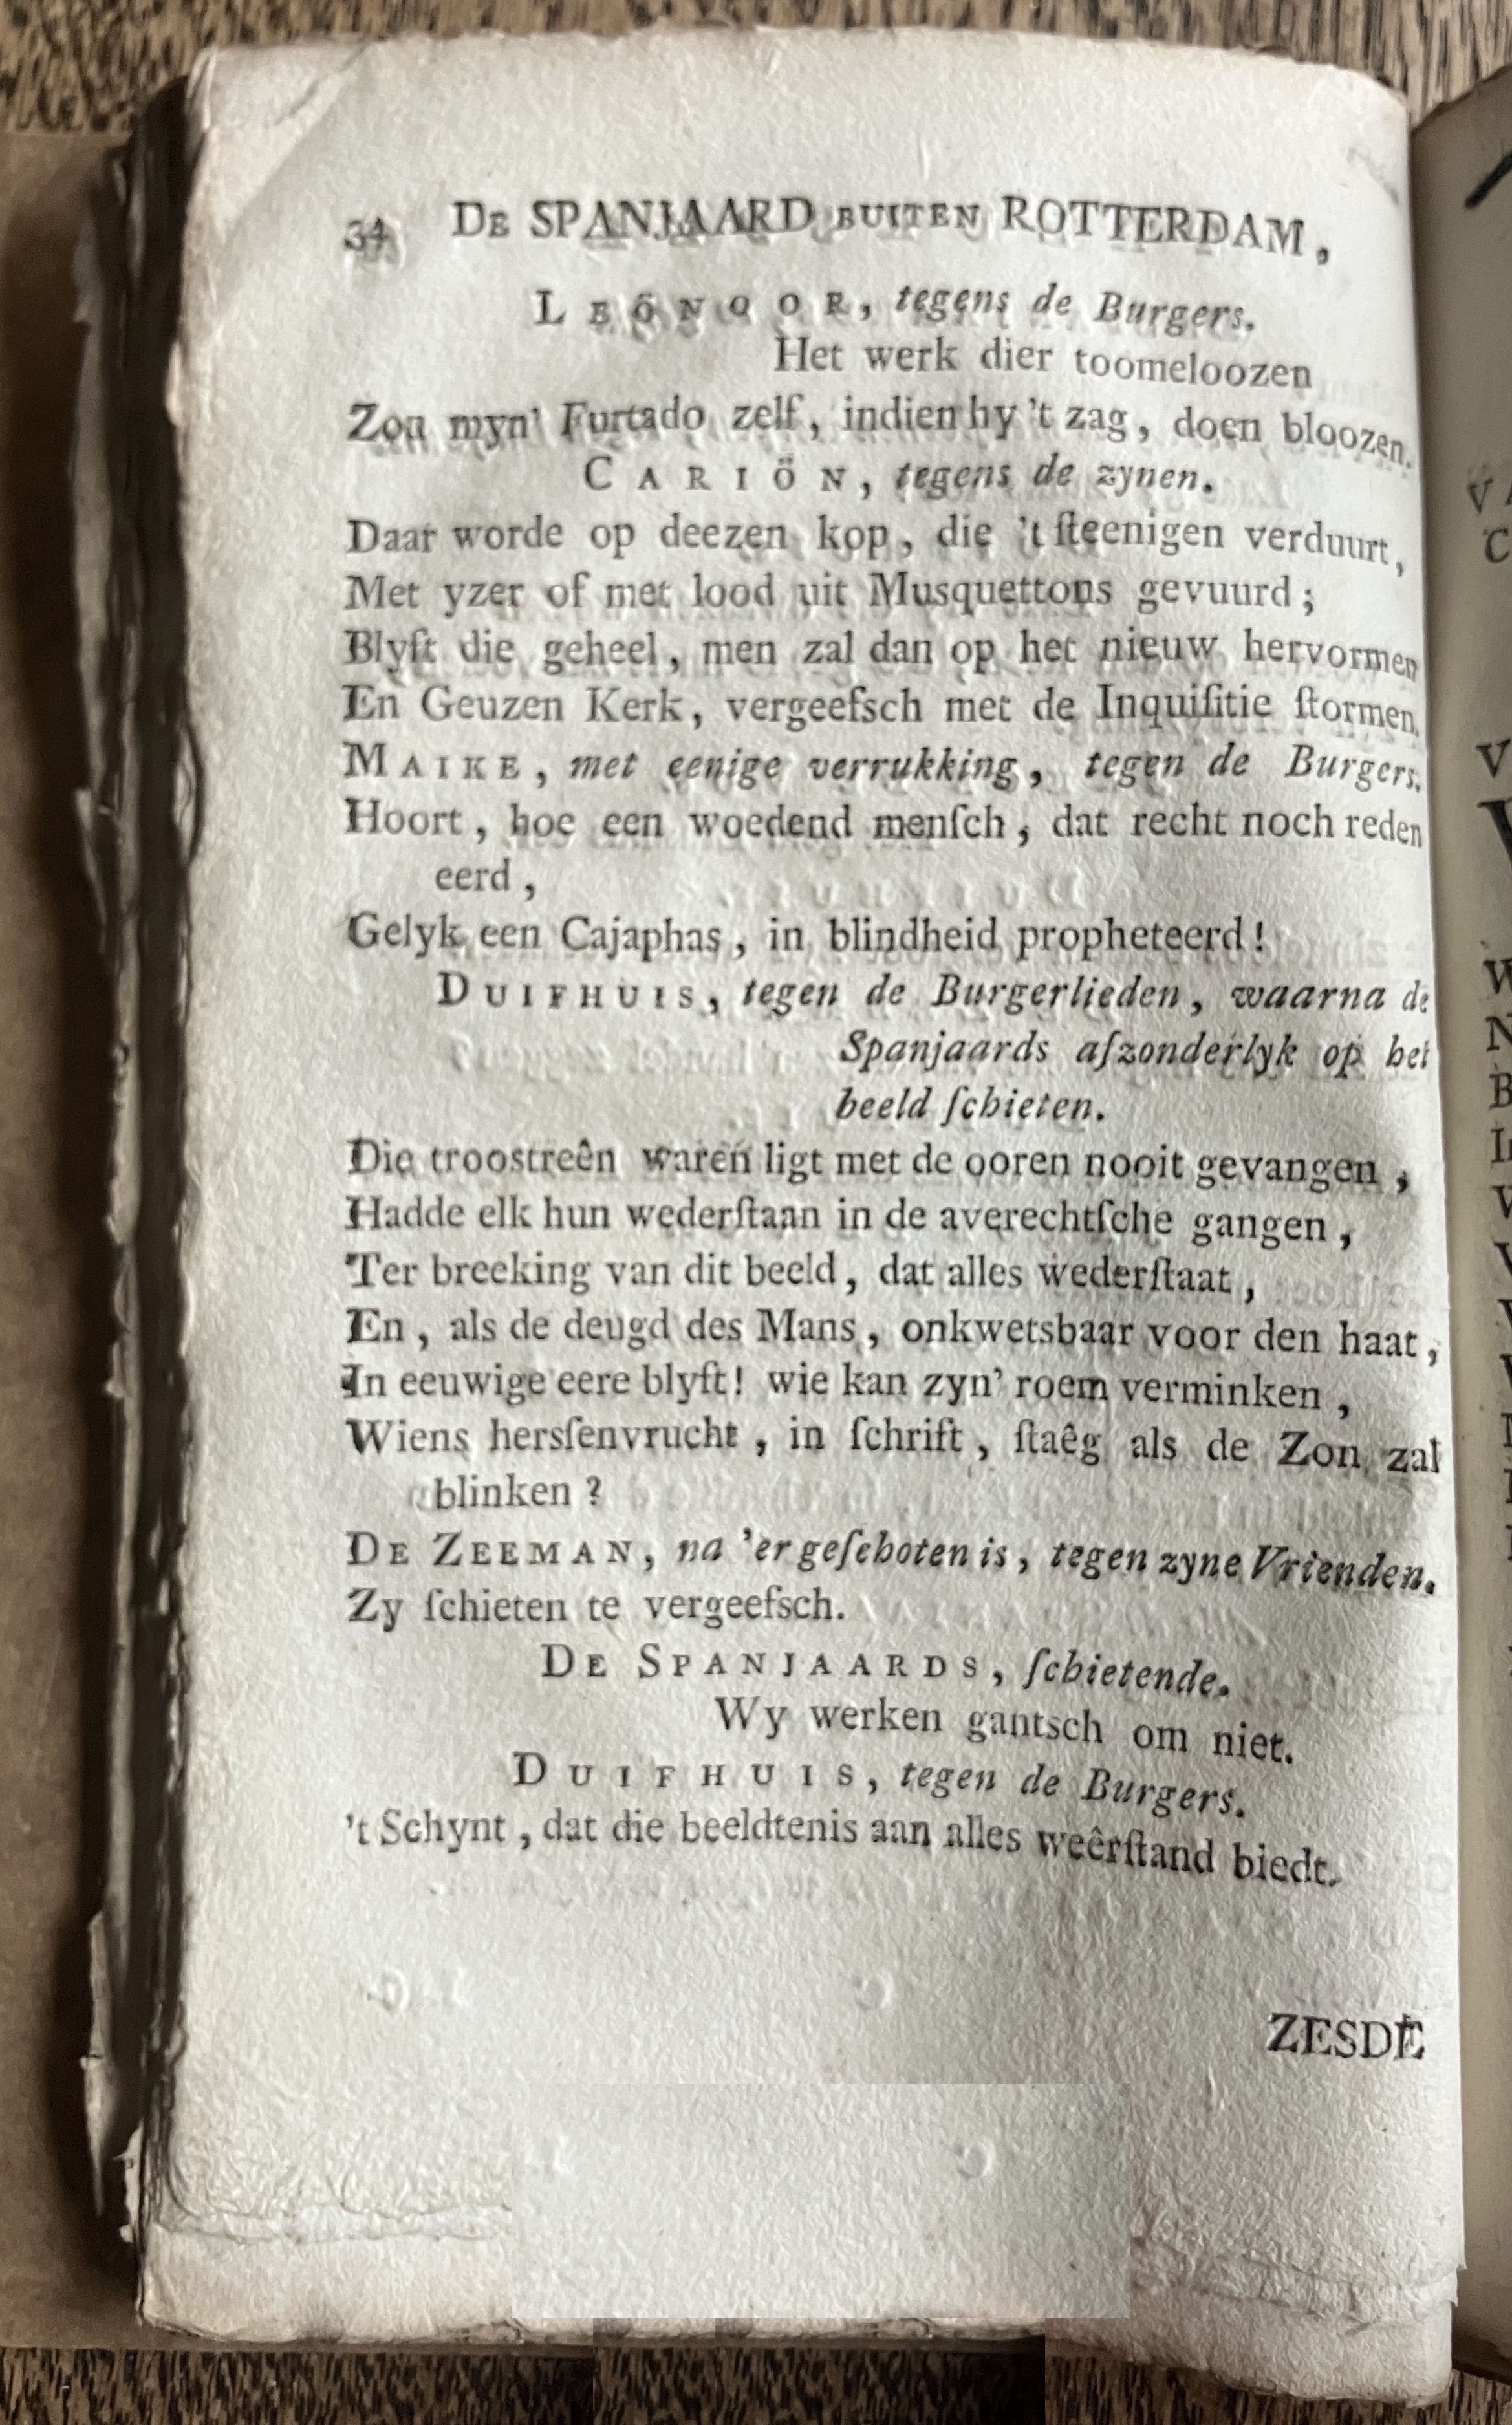 34 DE SPANJAARD BUITEN ROTTERDAM,
LEÖNOOR, tegens de Burgers.
Het werk dier toomeloozen
Zou myn' Furtado zelf, indien hy 't zag, doen bloozen.
CARIÖN, tegens de zynen.
Daar worde op deezen kop, die 't ſteenigen verduurt,
Met yzer of met lood uit Musquettons gevuurd;
Blyft die geheel, men zal dan op het nieuw hervormen
En Geuzen Kerk, vergeefsch met de Inquiſitie ſtormen.
MAIKE, met eenige verrukking, tegen de Burgers.
Hoort, hoe een woedend menſch, dat recht noch reden
eerd,
Gelyk een Cajaphas, in blindheid propheteerd!
DUIFHUIS, tegen de Burgerlieden, waarna de
Spanjaards afzonderlyk op het
beeld ſchieten.
Die troostreên waren ligt met de ooren nooit gevangen,
Hadde elk hun wederſtaan in de averechtſche gangen,
Ter breeking van dit beeld, dat alles wederſtaat,
En, als de deugd des Mans, onkwetsbaar voor den haat,
In eeuwige eere blyft! wie kan zyn' roem verminken,
Wiens hersſenvrucht, in ſchrift, ſtaêg als de Zon zal
blinken?
DE ZEEMAN, na 'er geſchoten is, tegen zyne Vrienden.
Zy ſchieten te vergeefsch.
DE SPANJAARDS, ſchietende.
Wy werken gantsch om niet.
DUIFHUIS, tegen de Burgers.
't Schynt, dat die beeldtenis aan alles weêrſtand biedt.
ZESDE